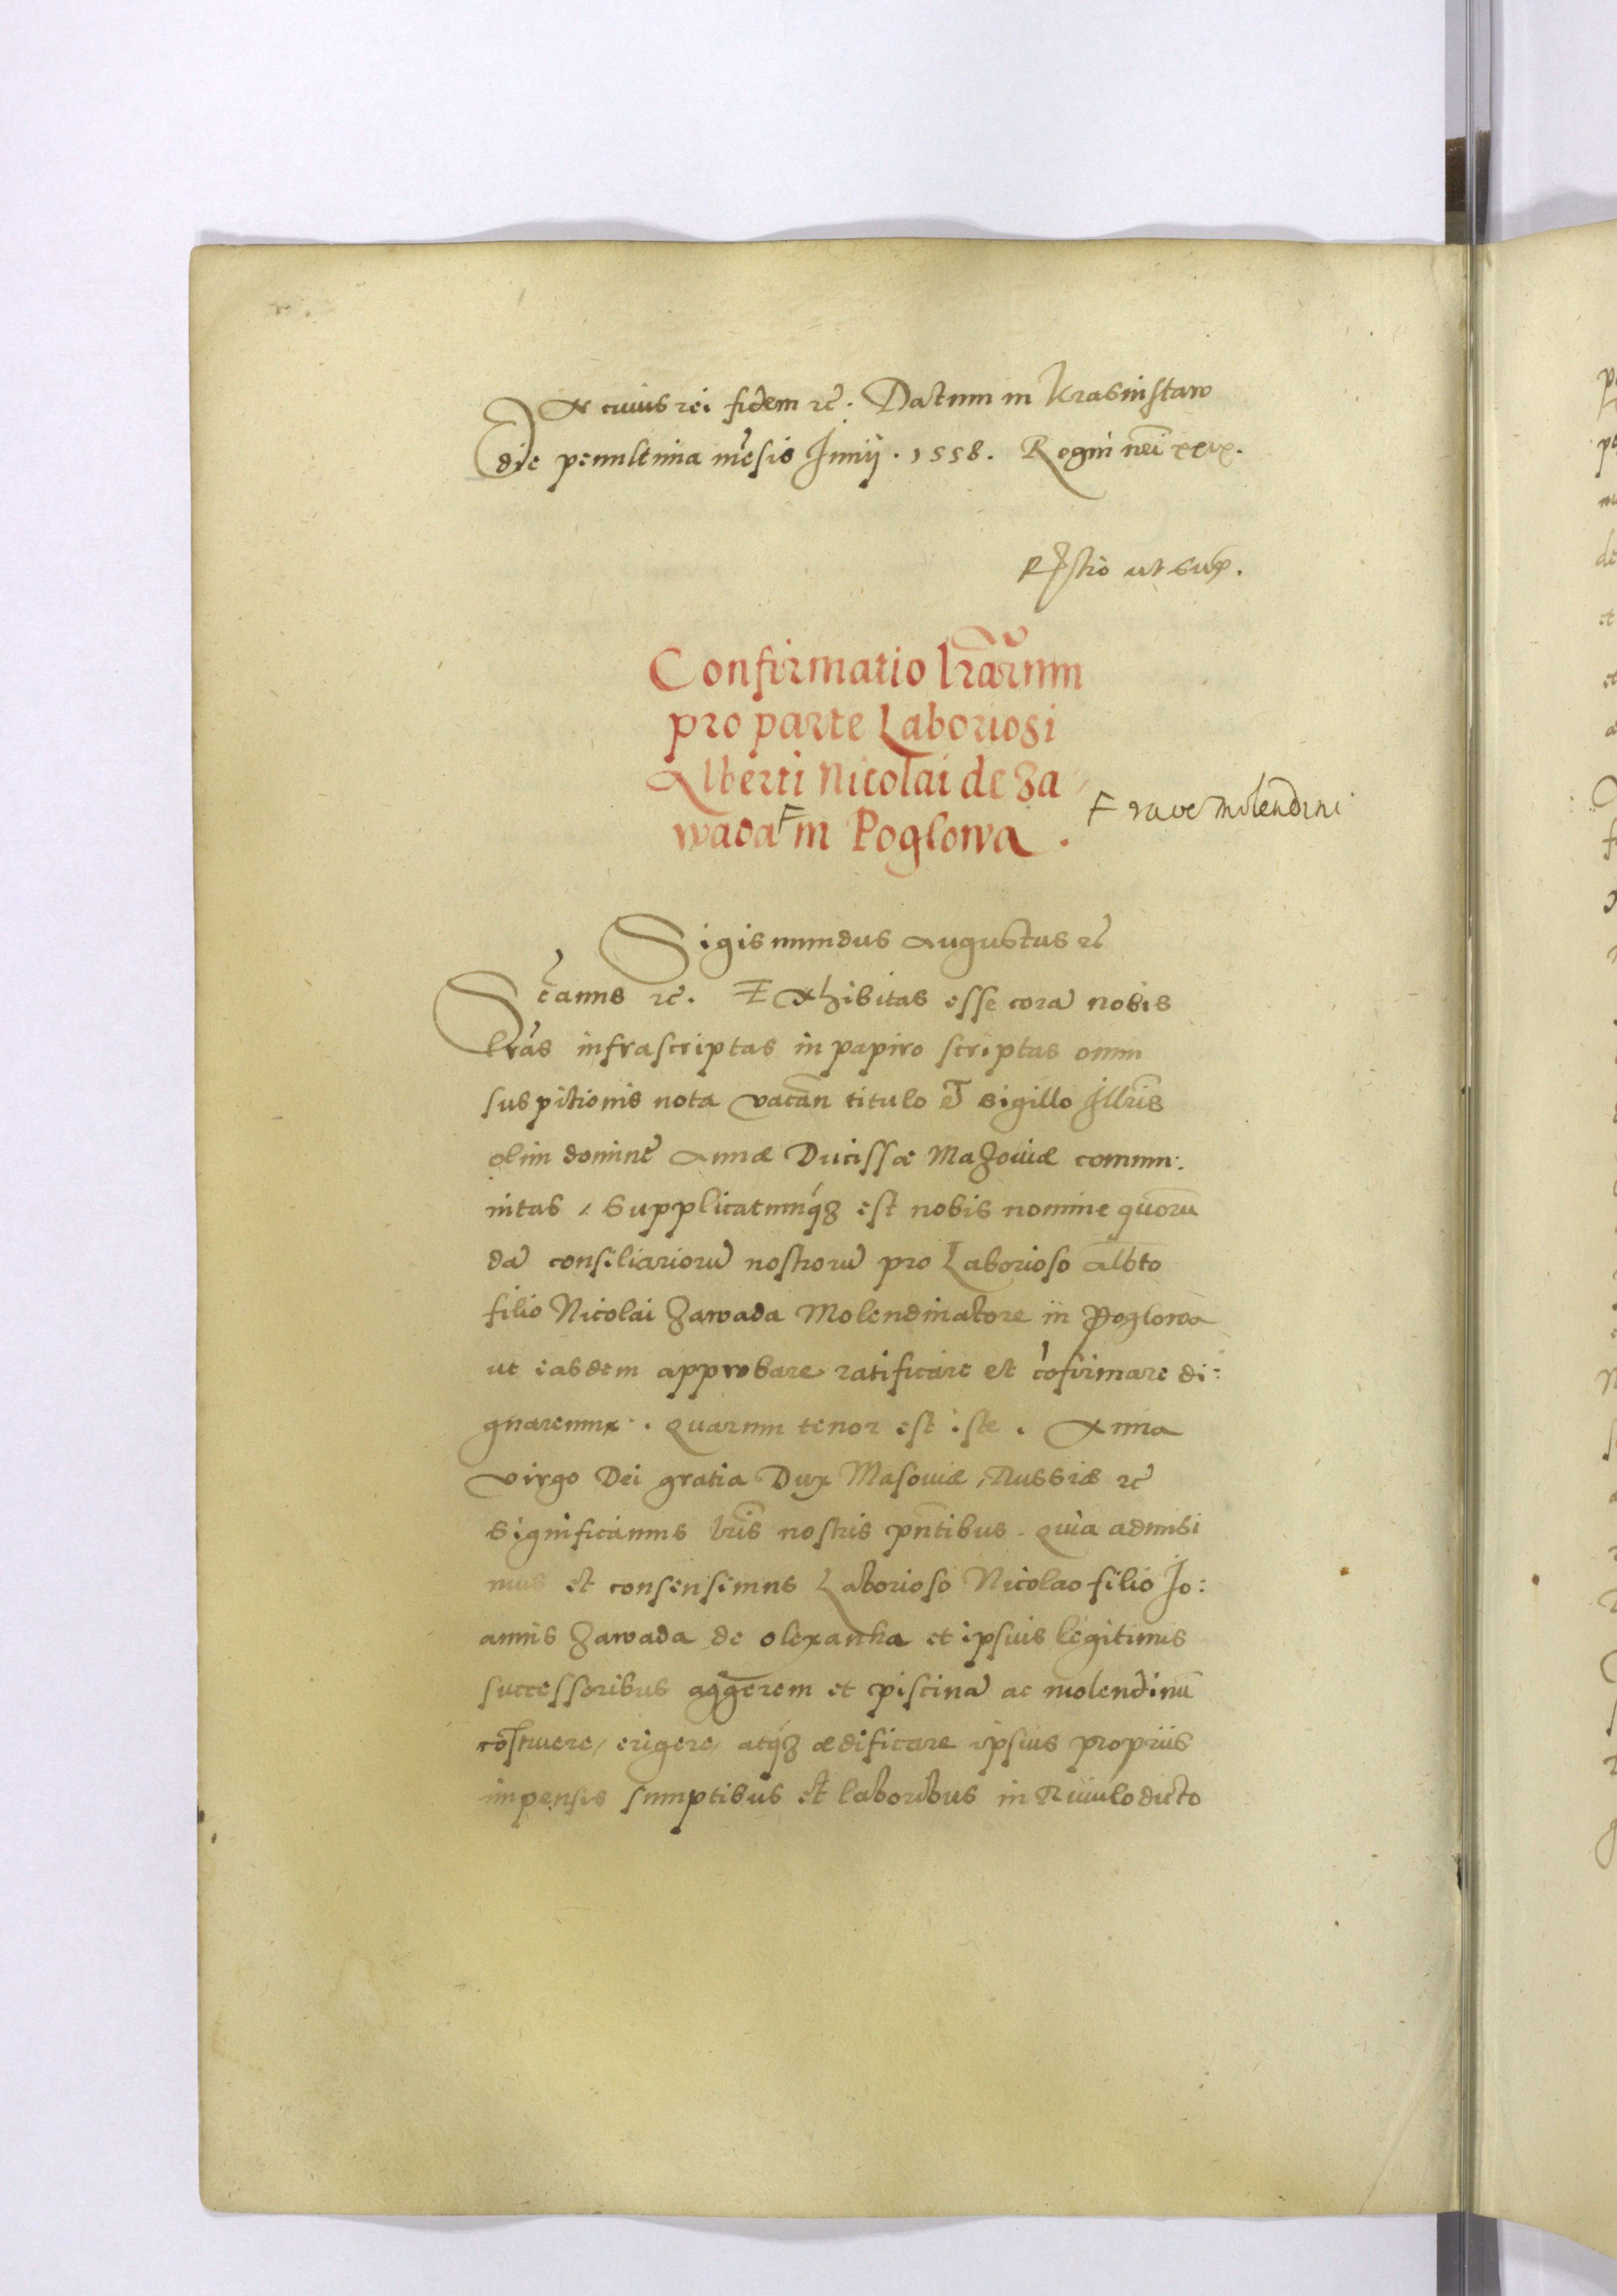 In cuius rei fidem rc̃. Datum in Krasnistaw
die penultima mẽsis Junii . 1558. Regni nr̃i
ut supr̃.
Confirmatio lrãrum
pro parte Laboriosi
Alberti Nicolai de Za
wada F in Poglowa .
F rõe molendini
Sigismundus Augustus rc̃
Sc̃amus rc̃. Exhibitas esse corã nobis
lrãs infrascriptas in papiro scriptas omni
suspitionis nota vacañ titulo et sigillo Illũris
olim dominẽ Annæ Ducissæ Mazoviæ commu:
nitas, Supplicatumq́ꝫ est nobis nomine quorũ
dã consiliariorũ nostrorũ pro Laborioso Alb̃to
filio Nicolai Zawada Molendinatore in Poglowa
ut easdem approbare ratificare et cõfirmare di:
gnaremur. Quarum tenor est iste . Anna
virgo Dei gratia Dux Masoviæ, Russiæ rc̃
Significamus lrĩs nostris pñtibus. Quia admisi
mus et consensimus Laborioso Nicolao filio Jo:
annis Zawada de Olexanka et ipsius legitimis
successoribus aggerem et piscinã ac molendinũ
cõstruere, erigere, atq́ꝫ ædificare ipsius propriis
impensis sumptibus et laboribus in Rivulo dicto